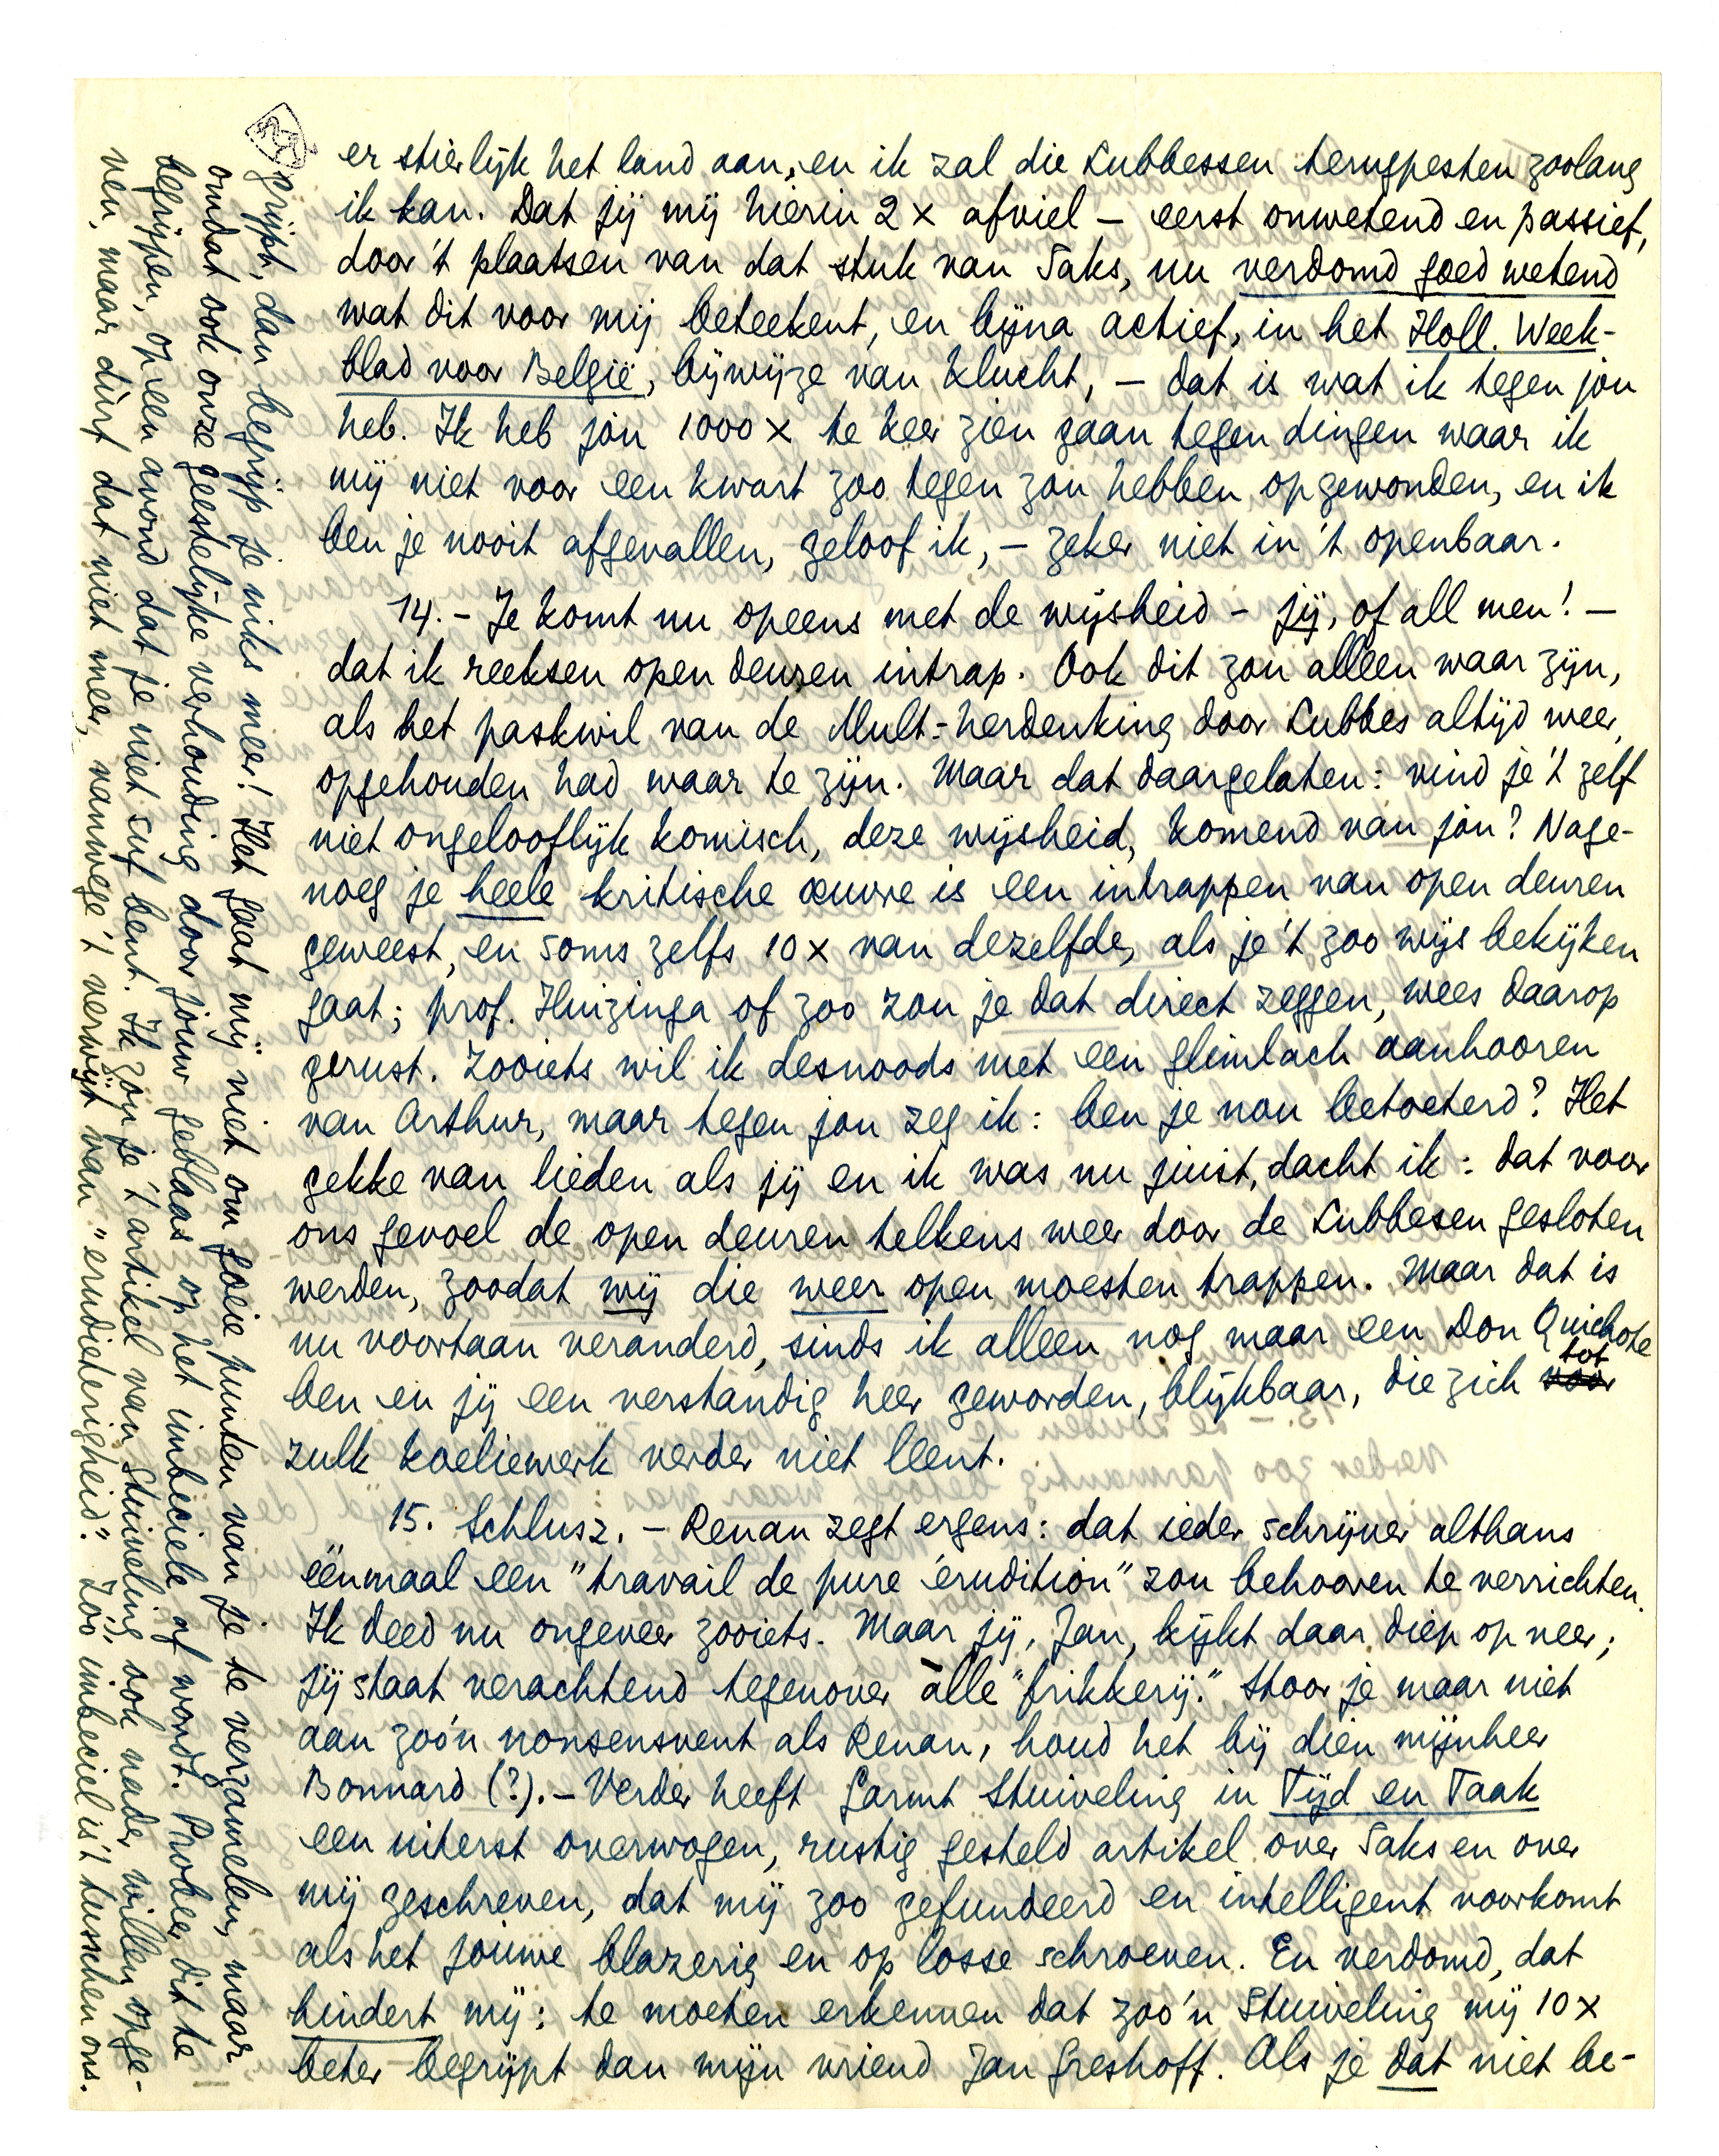 er stierlijk het land aan, en ik zal die Lubbessen terugpesten zoolang
ik kan. Dat jij mij hierin 2 x afviel – eerst onwetend en passief,
door 't plaatsen van dat stuk van Saks, nu verdomd goed wetend
wat dit voor mij beteekent, en bijna actief, in het Holl. Week-
blad voor België, bijwijze van klucht, – dat is wat ik tegen jou
heb. Ik heb jou 1000 x te keer zien gaan tegen dingen waar ik
mij niet voor een kwart zoo tegen zou hebben opgewonden, en ik
ben je nooit afgevallen, geloof ik, – zeker niet in 't openbaar.
14. – Je komt nu opeens met de wijsheid – jij, of all men! –
dat ik reeksen open deuren intrap. Ook dit zou alleen waar zijn,
als het paskwil van de Mult.-herdenking door Lubbes altijd weer,
opgehouden had waar te zijn. Maar dat daargelaten: vind je 't zelf
niet ongelooflijk komisch, deze wijsheid, komend van jou? Nage-
noeg je heele kritische œuvre is een intrappen van open deuren
geweest, en soms zelfs 10 x van dezelfde, als je 't zoo wijs bekijken
gaat; prof. Huizinga of zoo zou je dat direct zeggen, wees daarop
gerust. Zooiets wil ik desnoods met een glimlach aanhooren
van Arthur, maar tegen jou zeg ik: ben je nou betoeterd? Het
gekke van lieden als jij en ik was nu juist, dacht ik: dat voor
ons gevoel de open deuren telkens weer door de Lubbesen gesloten
werden, zoodat wij die weer open moesten trappen. Maar dat is
nu voortaan veranderd, sinds ik alleen nog maar een Don Quichote
ben en jij een verstandig heer geworden, blijkbaar, die zich voor tot
zulk koeliewerk verder niet leent.
15. Schlusz. – Renan zegt ergens: dat ieder schrijver althans
éénmaal een "travail de pure érudition" zou behooren te verrichten.
Ik deed nu ongeveer zooiets. Maar jij, Jan, kijkt daar diep op neer;
jij staat verachtend tegenover àlle "frikkerij." Stoor je maar niet
aan zoo'n nonsensvent als Renan, houd het bij dien mijnheer
Bonnard (?). – Verder heeft Garmt Stuiveling in Tijd en Taak
een uiterst overwogen, rustig gesteld artikel over Saks en over
mij geschreven, dat mij zoo gefundeerd en intelligent voorkomt
als het jouwe blazerig en op losse schroeven. En verdomd, dat
hindert mij: te moeten erkennen dat zoo'n Stuiveling mij 10 x
beter begrijpt dan mijn vriend Jan Greshoff. Als je dat niet be-
grijpt, dan begrijp je niks meer! Het gaat mij niet om goeie punten van je te verzamelen, maar
omdat ook onze geestelijke verhouding door jouw geblaas op het imbeciele af wordt. Probeer dit te
begrijpen, op een avond dat je niet suf bent. Ik zou je 't artikel van Stuiveling ook nader willen opge-
ven, maar dùrf dat niet meer, vanwege 't verwijt van "erudieterigheid." Zóó imbeciel is 't tusschen ons.